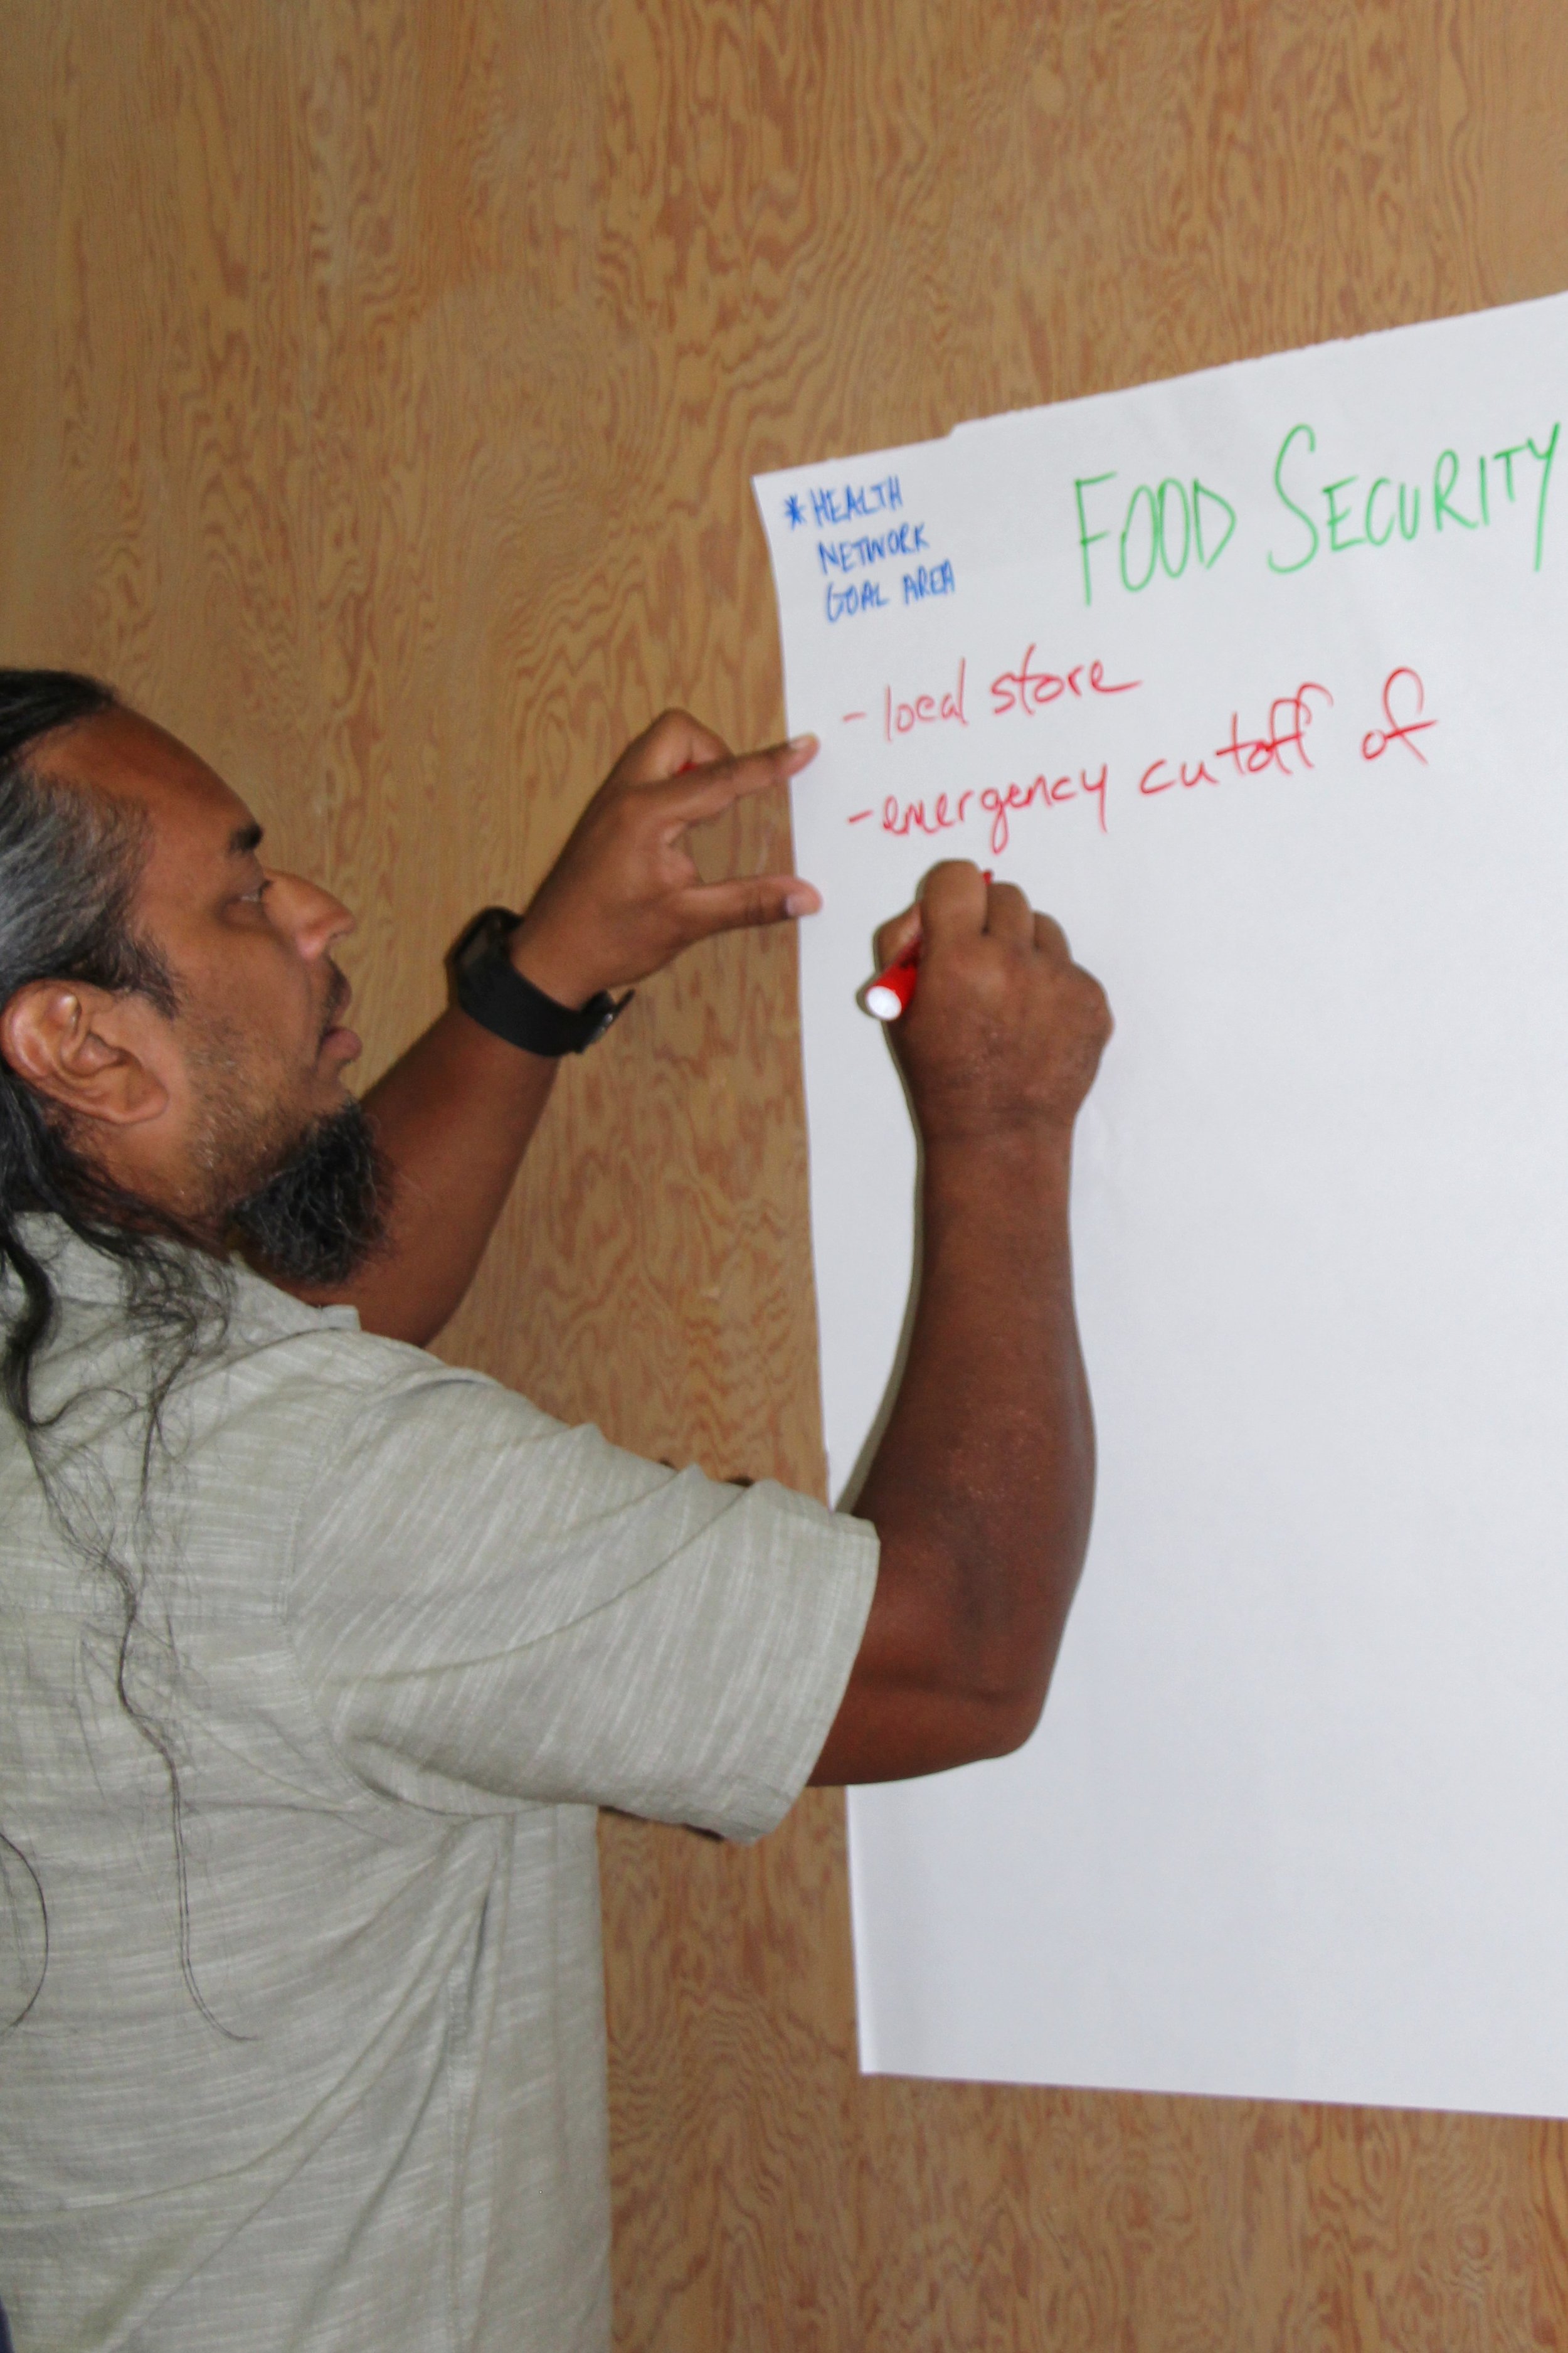 * HEALTH
NETWORK
GOAL AREA
FOOD SECURITY
- local store
- emergency cutoff of